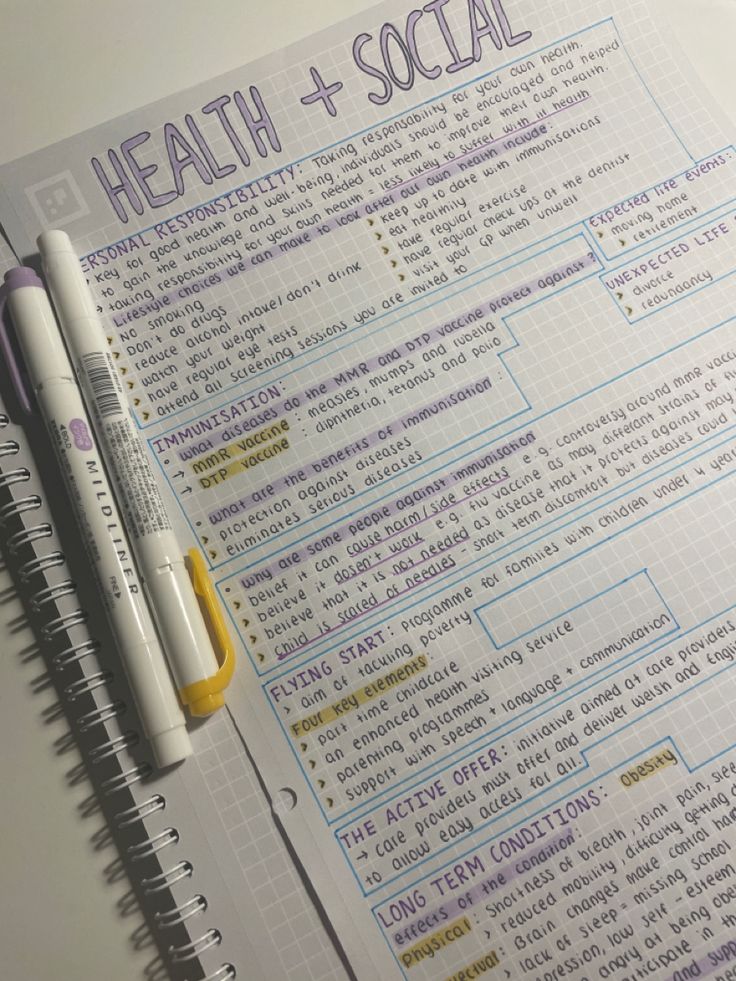 HEALTH + SOCIAL
ERSONAL RESPONSIBILITY: Taking responsability for your own health.
key for good health and well-being, individuals should be encouraged and helped
to gain the knowlege and skills needed for them to improve their own health.
taking responsibility for your own health = less likely to suffer with ill health
Lifestyle choices we can make to look after our own health include:
> NO smoking
> Don't do drugs
> reduce alcohol intake/don't drink
> watch your weight
> have regular eye tests
> attend all screening sessions you are invited to
> keep up to date with immunisations
> eat healthily
> take regular exercise
> have regular check ups at the dentist
> visit your GP when unwell
Expected life events:
> moving home
> retirement
UNEXPECTED LIFE
> divorce
> redundancy
IMMUNISATION:
• what diseases do the MMR and DTP vaccine protect against?
→ MMR vaccine : measles, mumps and rubella
→ DTP vaccine : diptheria, tetanus and polio
• what are the benefits of immunisation:
> protection against diseases
> eliminates serious diseases
• why are some people against immunisation
> belief it can cause harm/side effects e.g: controversy around MMR vacci
> believe it dosen't work e.g. flu vaccine as may different strains of fl
> believe that it is not needed as disease that it protects against may
> child is scared of needles - short term discomfort but diseases could
FLYING START: programme for families with children under 4 year
> aim of tackling poverty
Four key elements:
> part time childcare
> an enhanced health visiting service
> parenting programmes
> support with speech + language + communication
THE ACTIVE OFFER: initiative aimed at care providers
→ care providers must offer and deliver welsh and englis
to allow easy access for all.
LONG TERM CONDITIONS: Obesity
effects of the condition:
Physical: shortness of breath, joint pain, slee
> reduced mobility, difficulty getting d
ectual: Brain changes make control hard
> lack of sleep = missing school
pression, low self-esteem
angry at being obes
articipate in th
and supp
4 BOLD
MILDLINER
FINE